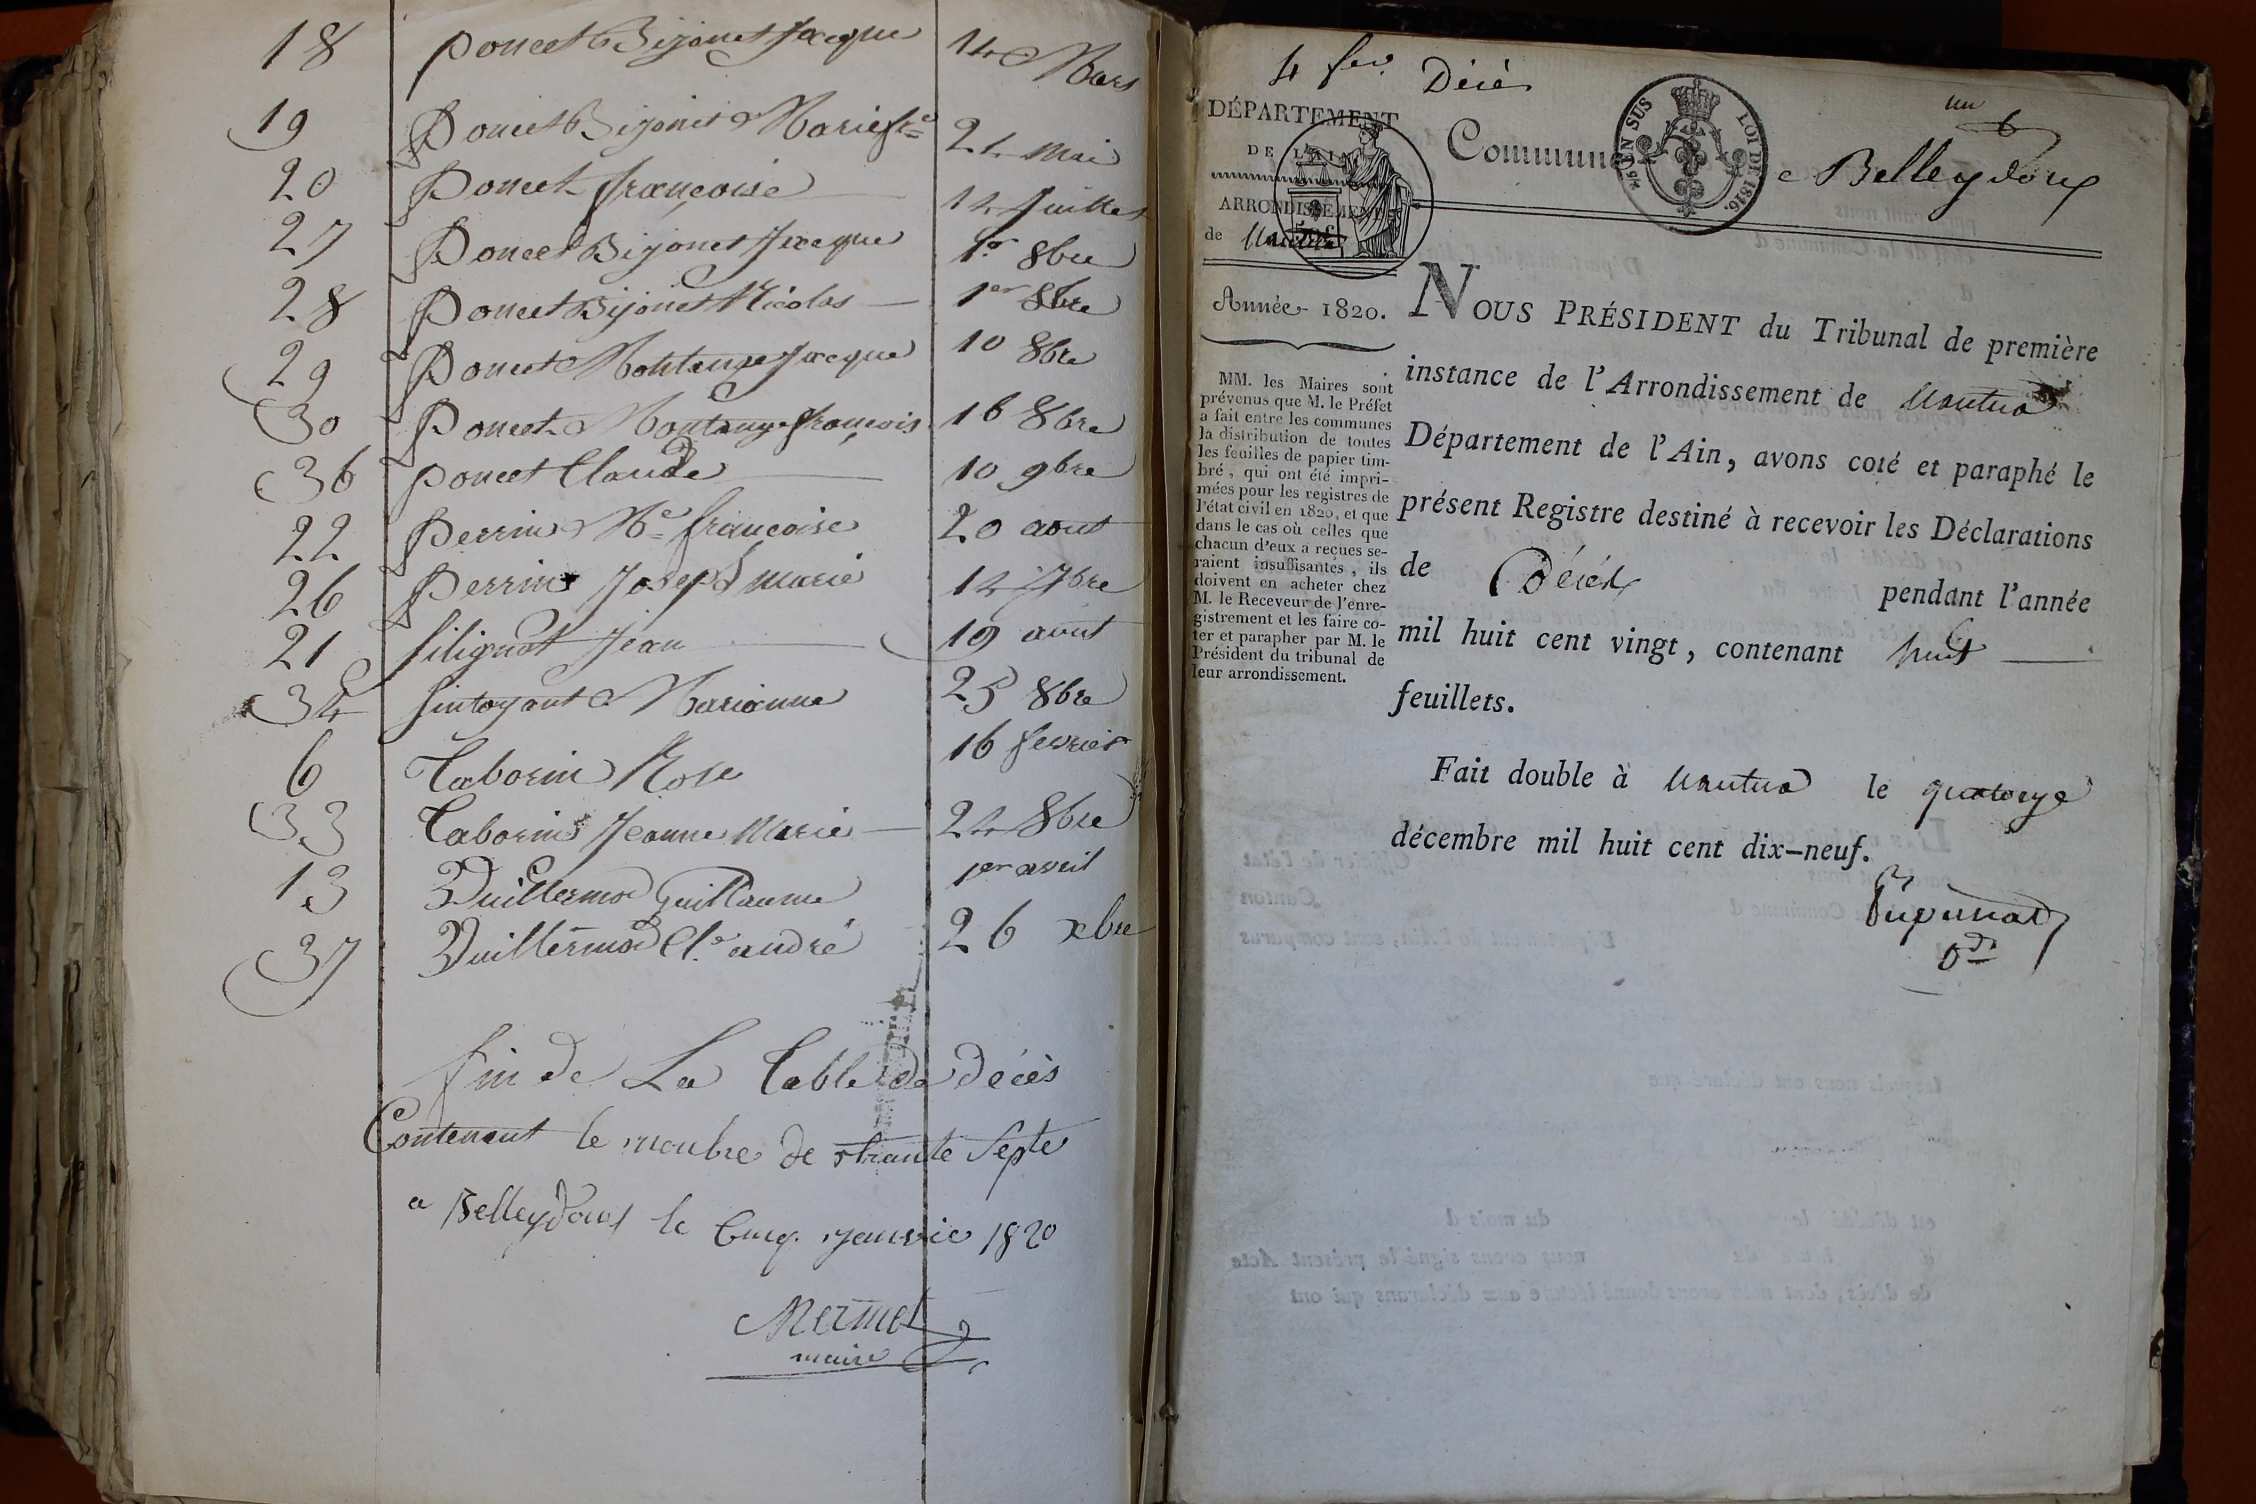 18 Poncet Bijonet Jacque 14 Mars
19 Poncet Bijonet Marie fse 24 Mai
20 Poncet françoise 14 Juillet
27 Poncet Bijonet Jacque 1er 8bre
28 Poncet Bijonet Nicolas 1er 8bre
29 Poncet Montange Jacque 10 8bre
30 Poncet Montange françois 16 8bre
36 Poncet Claude 10 9bre
22 Perrin Me françoise 20 aout
26 Perrin Joseph marie 14 7bre
21 Silignat Jean 19 aout
34 Sintoyant Marianne 25 8bre
6 Taborin Rose 16 fevrier
33 Taborin Jeanne Marie 24 8bre
13 Vuillermod Guillaume 1er avril
37 Vuillermod Cl. andré 26 xbre
fin de La Table de décès
Contenant le nonbre de trante Septe
a Belleydoux le Cinq janvie 1820
Mermet
maire
4 fer Décès
un
DÉPARTEMENT
DE L'AIN
ARRONDISSEMENT
de Nantua
Commune de Belleydoux
EN SUS LOI DE 1816.
Année 1820.
MM. les Maires sont
prévenus que M. le Préfet
a fait entre les communes
la distribution de toutes
les feuilles de papier tim-
bré, qui ont été impri-
mées pour les registres de
l'état civil en 1820, et que
dans le cas où celles que
chacun d'eux a reçues se-
raient insuffisantes, ils
doivent en acheter chez
M. le Receveur de l'enre-
gistrement et les faire co-
ter et parapher par M. le
Président du tribunal de
leur arrondissement.
NOUS PRÉSIDENT du Tribunal de première
instance de l'Arrondissement de Nantua
Département de l'Ain, avons coté et paraphé le
présent Registre destiné à recevoir les Déclarations
de Décès pendant l'année
mil huit cent vingt, contenant huit
feuillets.
Fait double à Nantua le quatorze
décembre mil huit cent dix-neuf.